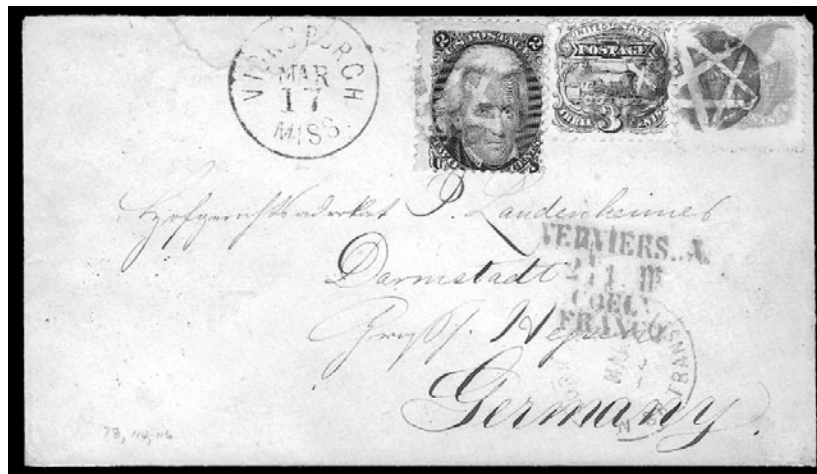 VICKSBURGH
MAR
17
MISS.
2 U.S. POSTAGE 2
U S
UNITED STATES
POSTAGE
THREE CENTS
3
Hofgerichtsadvokat P.
Darmstadt
Grossh. Hessen
Germany.
VERVIERS
COELN
FRANCO
73, 114, 116